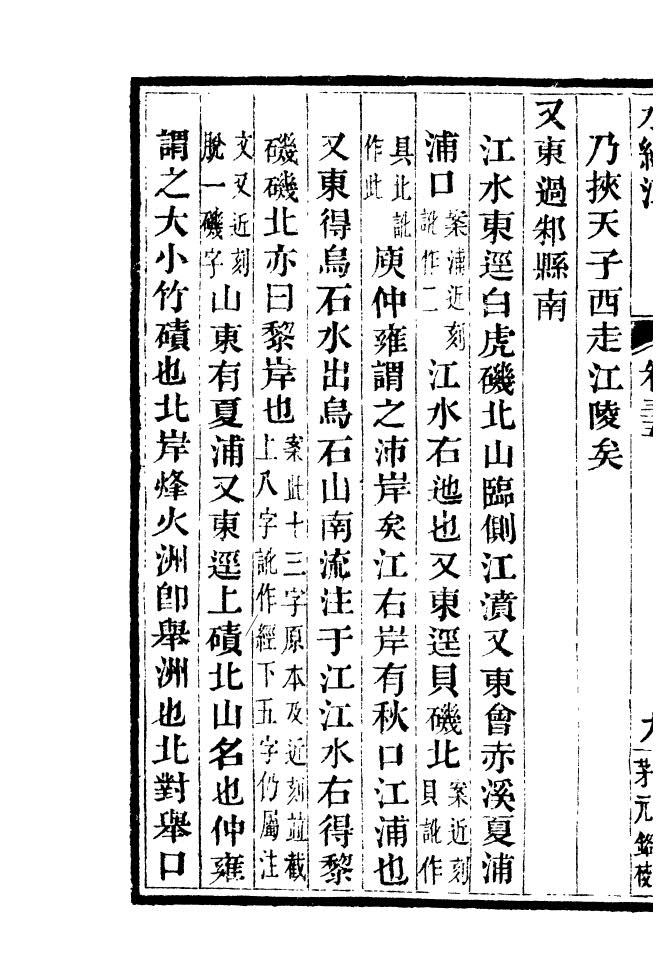 水經注 卷三十五 九
乃挾天子西走江陵矣
又東過邾縣南
江水東逕白虎磯北山臨側江濆又東會赤溪夏浦
浦口案浦近刻訛作二江水右迆也又東逕貝磯北案近刻貝訛作
具北訛作此庾仲雍謂之沛岸矣江右岸有秋口江浦也
又東得烏石水出烏石山南流注于江江水右得黎
磯磯北亦曰黎岸也案此十三字原本及近刻竝截上八字訛作經下五字仍屬注
文又近刻脫一磯字山東有夏浦又東逕上磧北山名也仲雍
謂之大小竹磧也北岸烽火洲卽舉洲也北對舉口